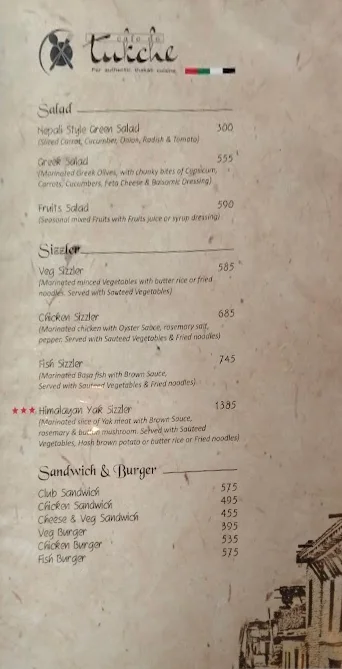 cafe de
Tukche
For authentic thakali cuisine
Salad
Nepali Style Green Salad 300
(Sliced Carrot, Cucumber, Onion, Radish & Tomato)
Greek Salad 555
(Marinated Greek Olives, with chunky bites of Cypsicum,
Carrots, Cucumbers, Feta Cheese & Balsamic Dressing)
Fruits Salad 590
(Seasonal mixed Fruits with Fruits juice or syrup dressing)
Sizzler
Veg Sizzler 585
(Marinated minced Vegetables with butter rice or fried
noodles. Served with Sauteed Vegetables)
Chicken Sizzler 685
(Marinated chicken with Oyster Sauce, rosemary salt,
pepper. Served with Sauteed Vegetables & Fried noodles)
Fish Sizzler 745
(Marinated Basa fish with Brown Sauce,
Served with Sauteed Vegetables & Fried noodles)
★★★ Himalayan Yak Sizzler 1385
(Marinated slice of Yak meat with Brown Sauce,
rosemary & button mushroom. Served with Sauteed
Vegetables, Hash brown potato or butter rice or Fried noodles)
Sandwich & Burger
Club Sandwich 575
Chicken Sandwich 495
Cheese & Veg Sandwich 455
Veg Burger 395
Chicken Burger 535
Fish Burger 575